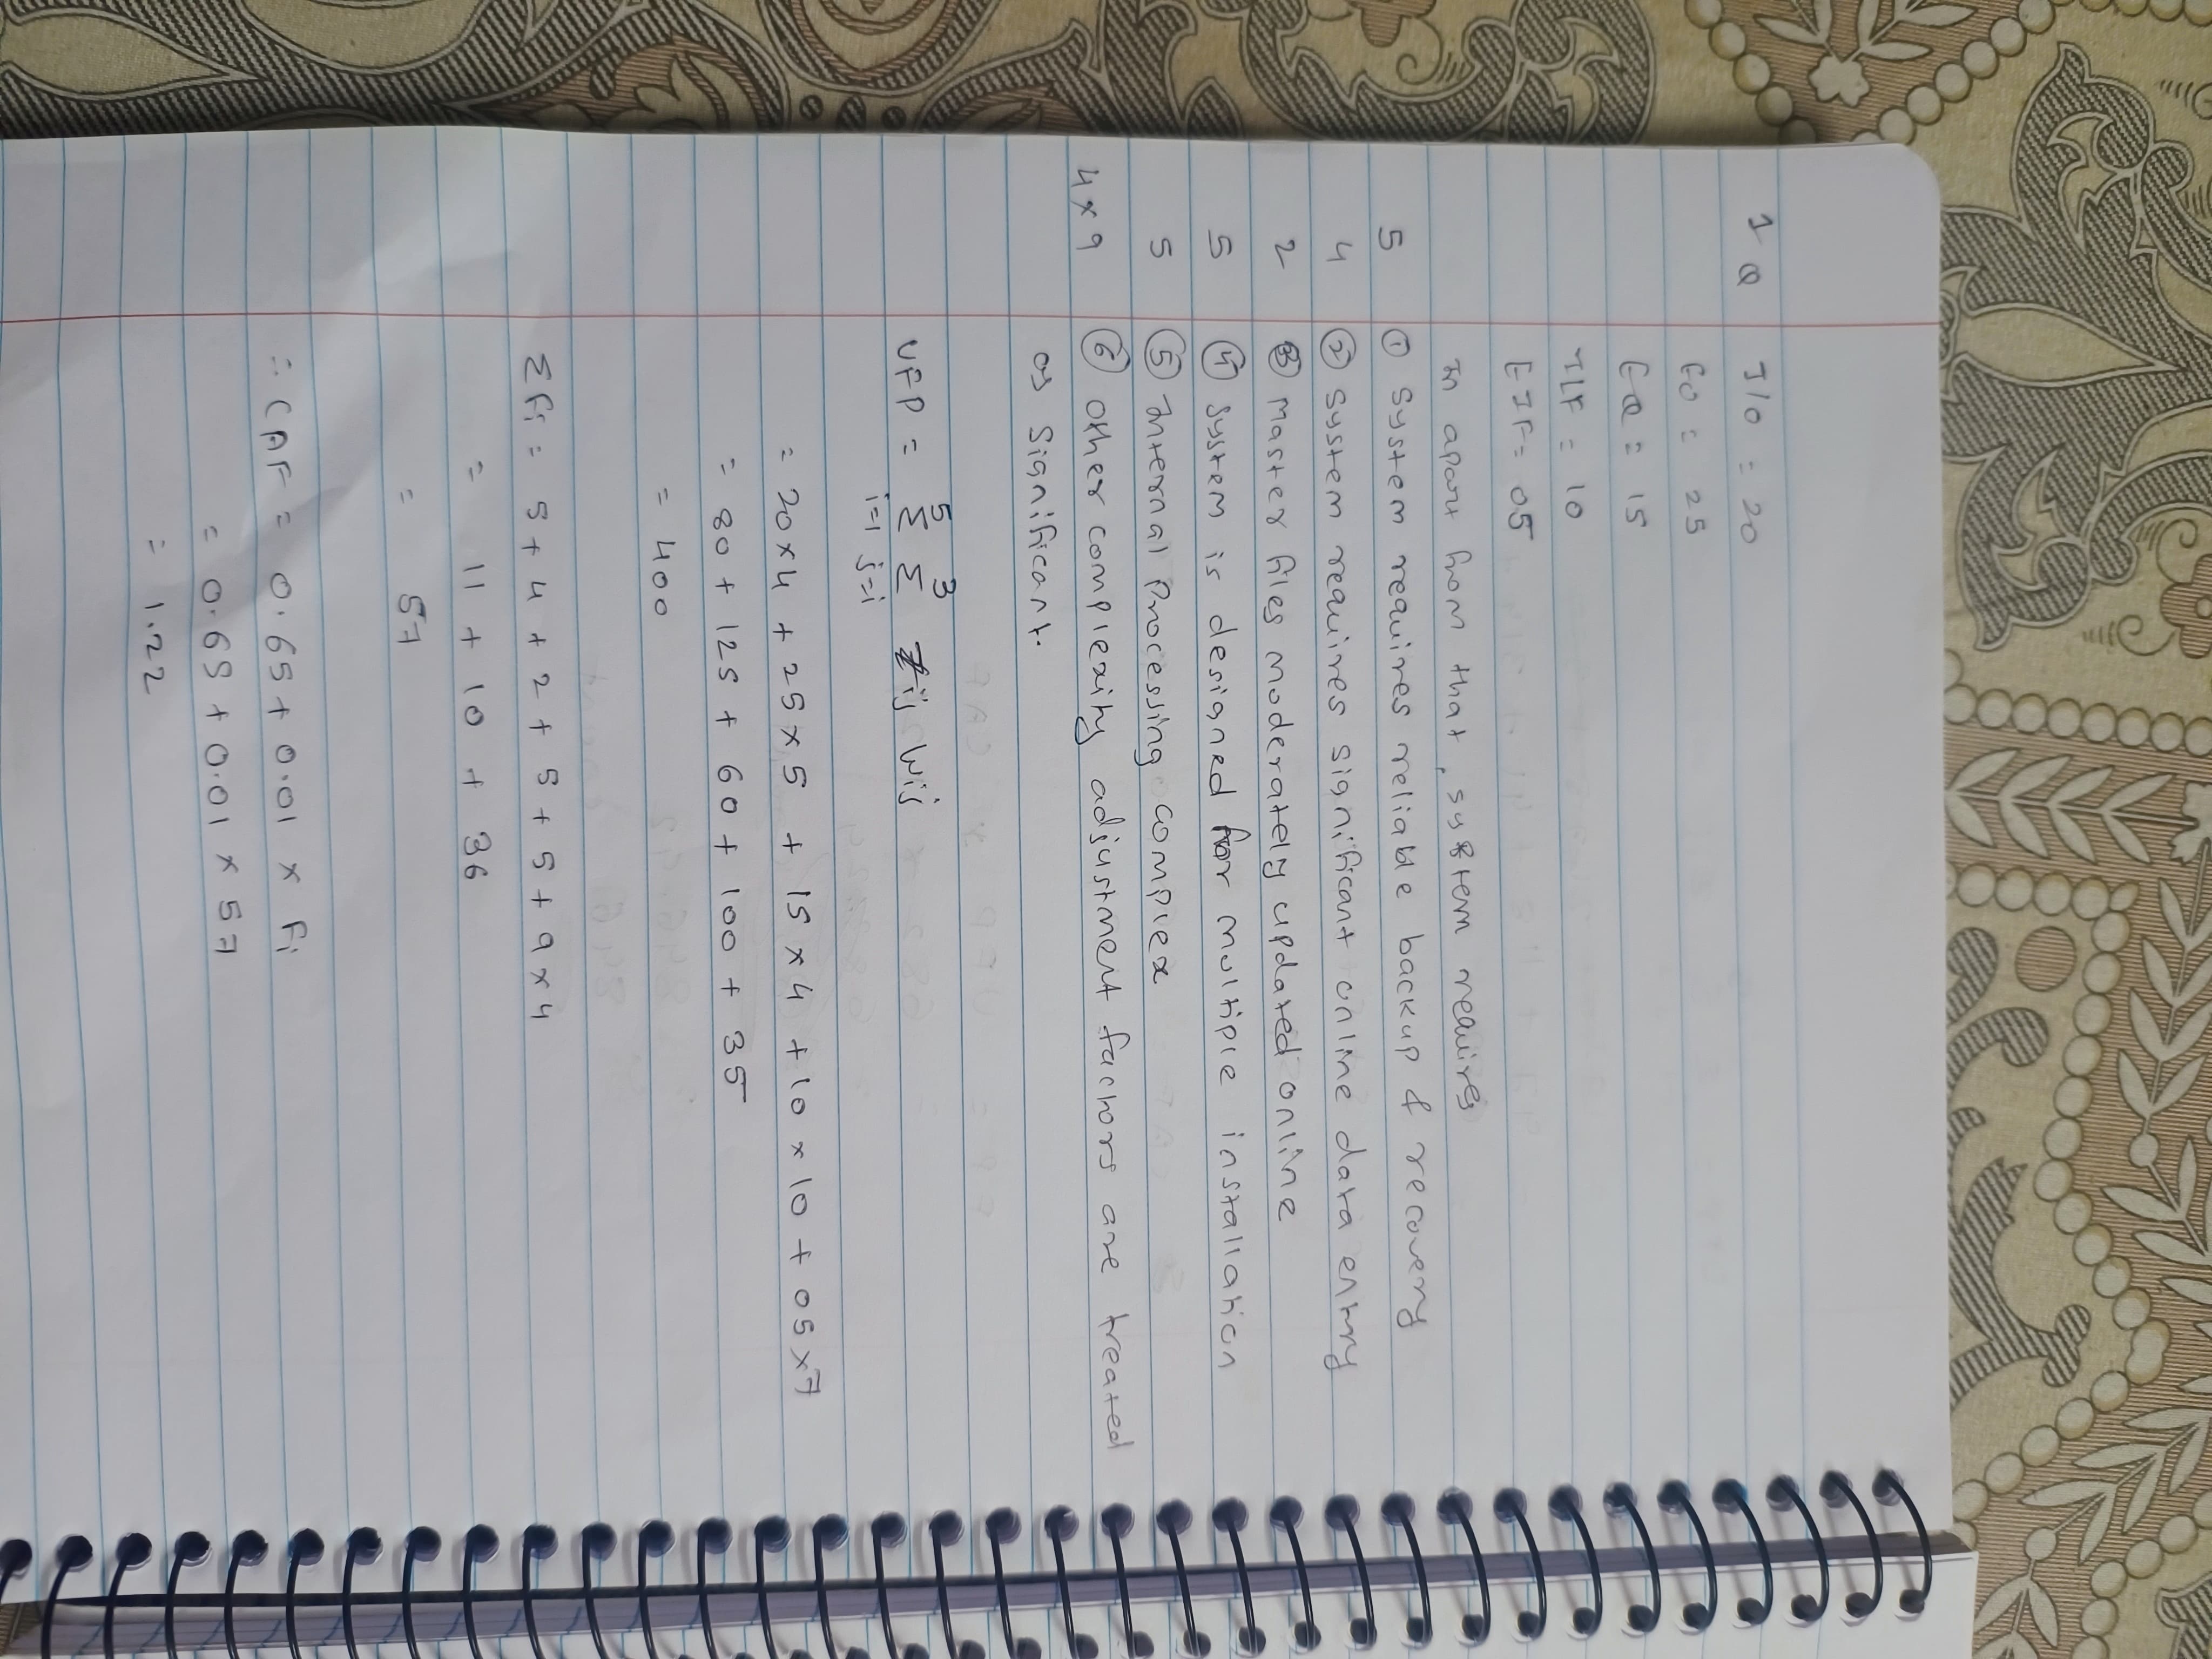 1 Q I/O = 20
EO = 25
EQ = 15
ILF = 10
EIF = 05
In apart from that, system requires
5 ① System requires reliable backup & recovery
4 ② System requires significant online data entry
2 ③ Master files moderately updated online
5 ④ System is designed for multiple installation
5 ⑤ Internal Processing complex
4 x 9 ⑥ Other complexity adjustment factors are treated
as significant.
UFP = 5Σi=1 3Σj=1 zij wij
= 20x4 + 25x5 + 15x4 + 10x10 + 05x7
= 80 + 125 + 60 + 100 + 35
= 400
Σfi = 5+4+2+5+5+9x4
= 11 + 10 + 36
= 57
∴ CAF = 0.65 + 0.01 x fi
= 0.65 + 0.01 x 57
= 1.22